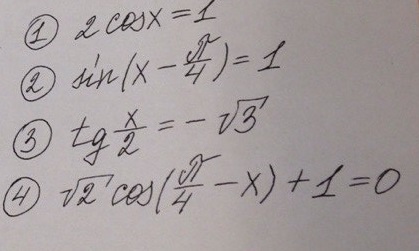 ① 2 cos x = 1
② sin(x - π/4) = 1
③ tg x/2 = - √3
④ √2 cos(π/4 - x) + 1 = 0